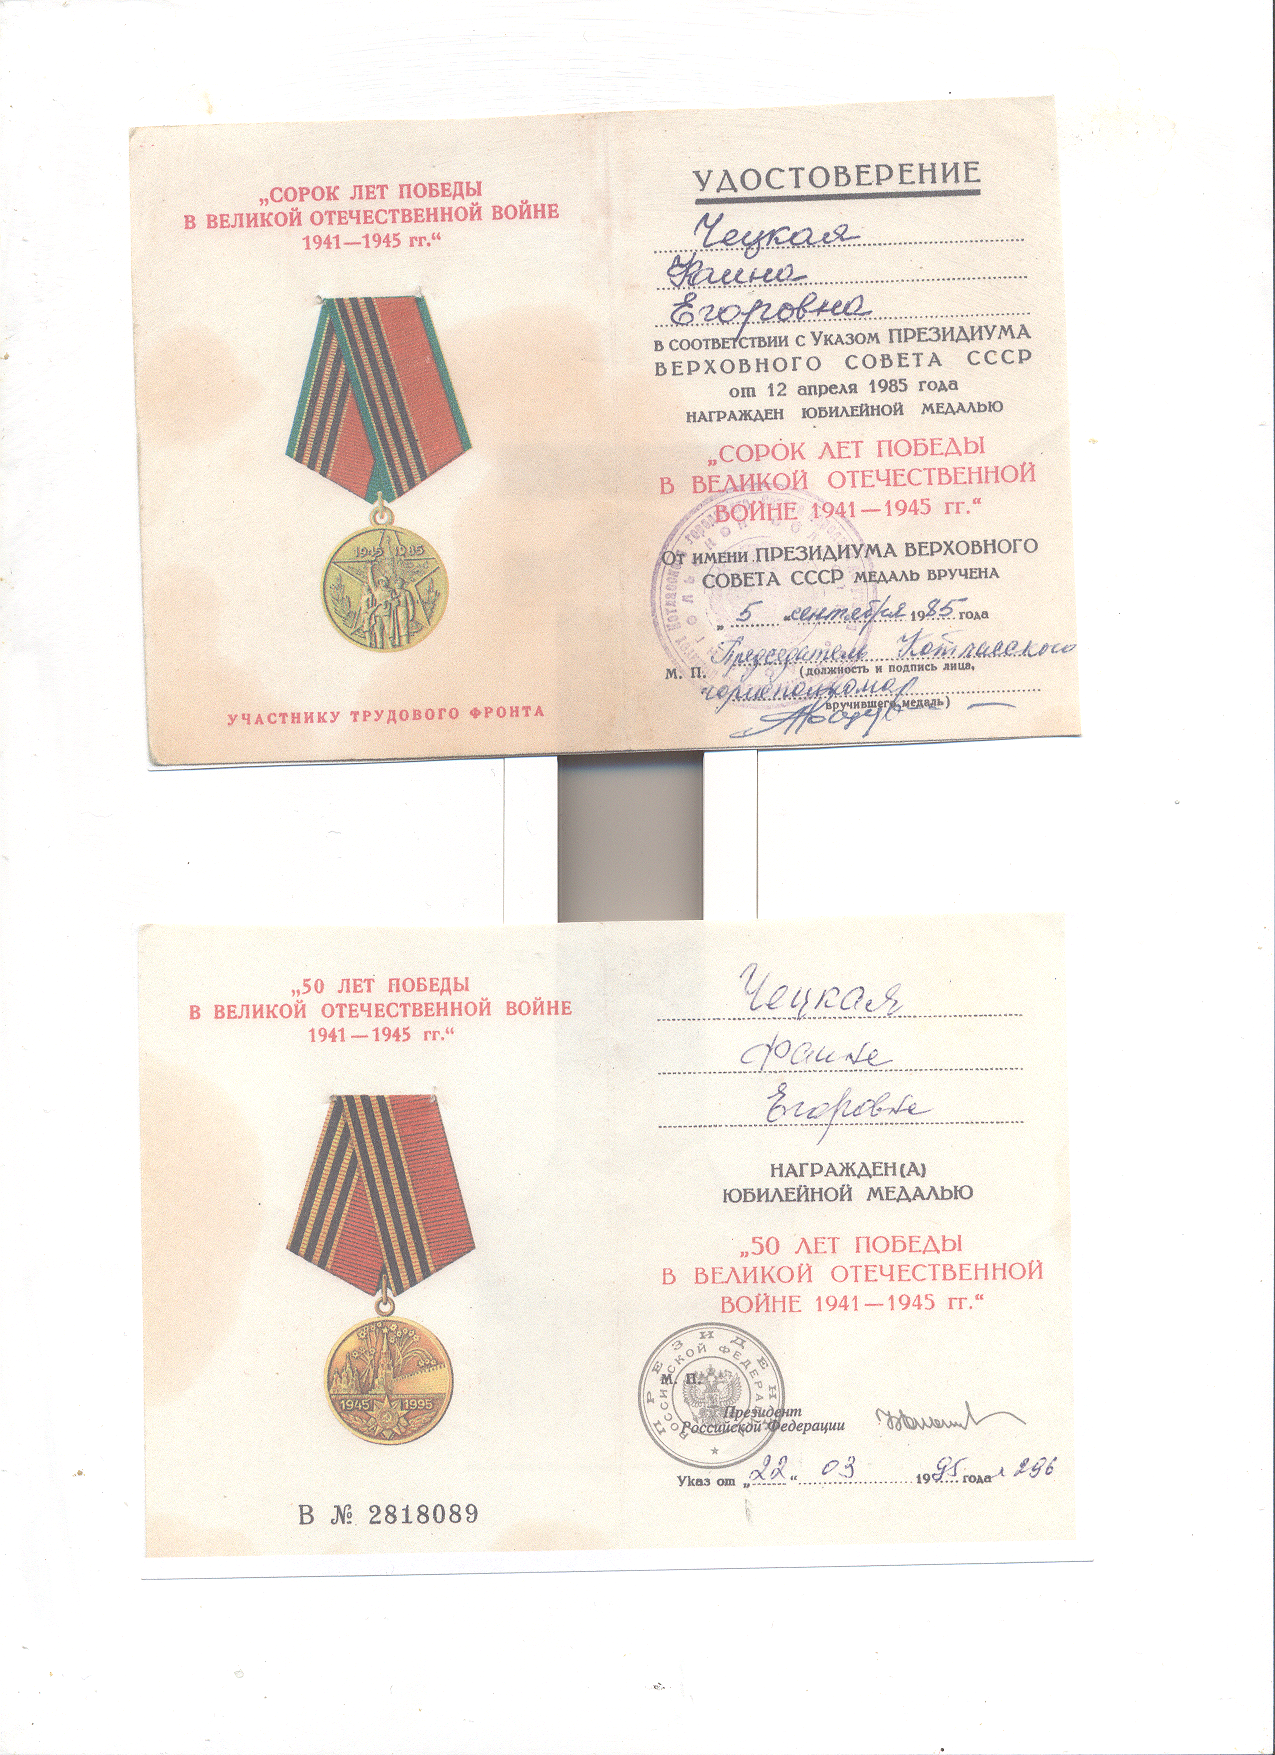 „СОРОК ЛЕТ ПОБЕДЫ
В ВЕЛИКОЙ ОТЕЧЕСТВЕННОЙ ВОЙНЕ
1941—1945 гг.“
1945 1985
УЧАСТНИКУ ТРУДОВОГО ФРОНТА
УДОСТОВЕРЕНИЕ
Чецкая
Фаина
Егоровна
В СООТВЕТСТВИИ С УКАЗОМ ПРЕЗИДИУМА
ВЕРХОВНОГО СОВЕТА СССР
от 12 апреля 1985 года
НАГРАЖДЕН ЮБИЛЕЙНОЙ МЕДАЛЬЮ
„СОРОК ЛЕТ ПОБЕДЫ
В ВЕЛИКОЙ ОТЕЧЕСТВЕННОЙ
ВОЙНЕ 1941—1945 гг.“
ОТ ИМЕНИ ПРЕЗИДИУМА ВЕРХОВНОГО
СОВЕТА СССР МЕДАЛЬ ВРУЧЕНА
„ 5 “ сентября 1985 года
Председатель Котласского
М. П. (должность и подпись лица,
горисполкома
вручившего медаль)
„50 ЛЕТ ПОБЕДЫ
В ВЕЛИКОЙ ОТЕЧЕСТВЕННОЙ ВОЙНЕ
1941—1945 гг.“
1945 1995
В № 2818089
Чецкая
Фаине
Егоровне
НАГРАЖДЕН(А)
ЮБИЛЕЙНОЙ МЕДАЛЬЮ
„50 ЛЕТ ПОБЕДЫ
В ВЕЛИКОЙ ОТЕЧЕСТВЕННОЙ
ВОЙНЕ 1941—1945 гг.“
ПРЕЗИДЕНТ
РОССИЙСКОЙ ФЕДЕРАЦИИ
М. П.
Президент
Российской Федерации
Указ от „22“ 03 1995 года 296